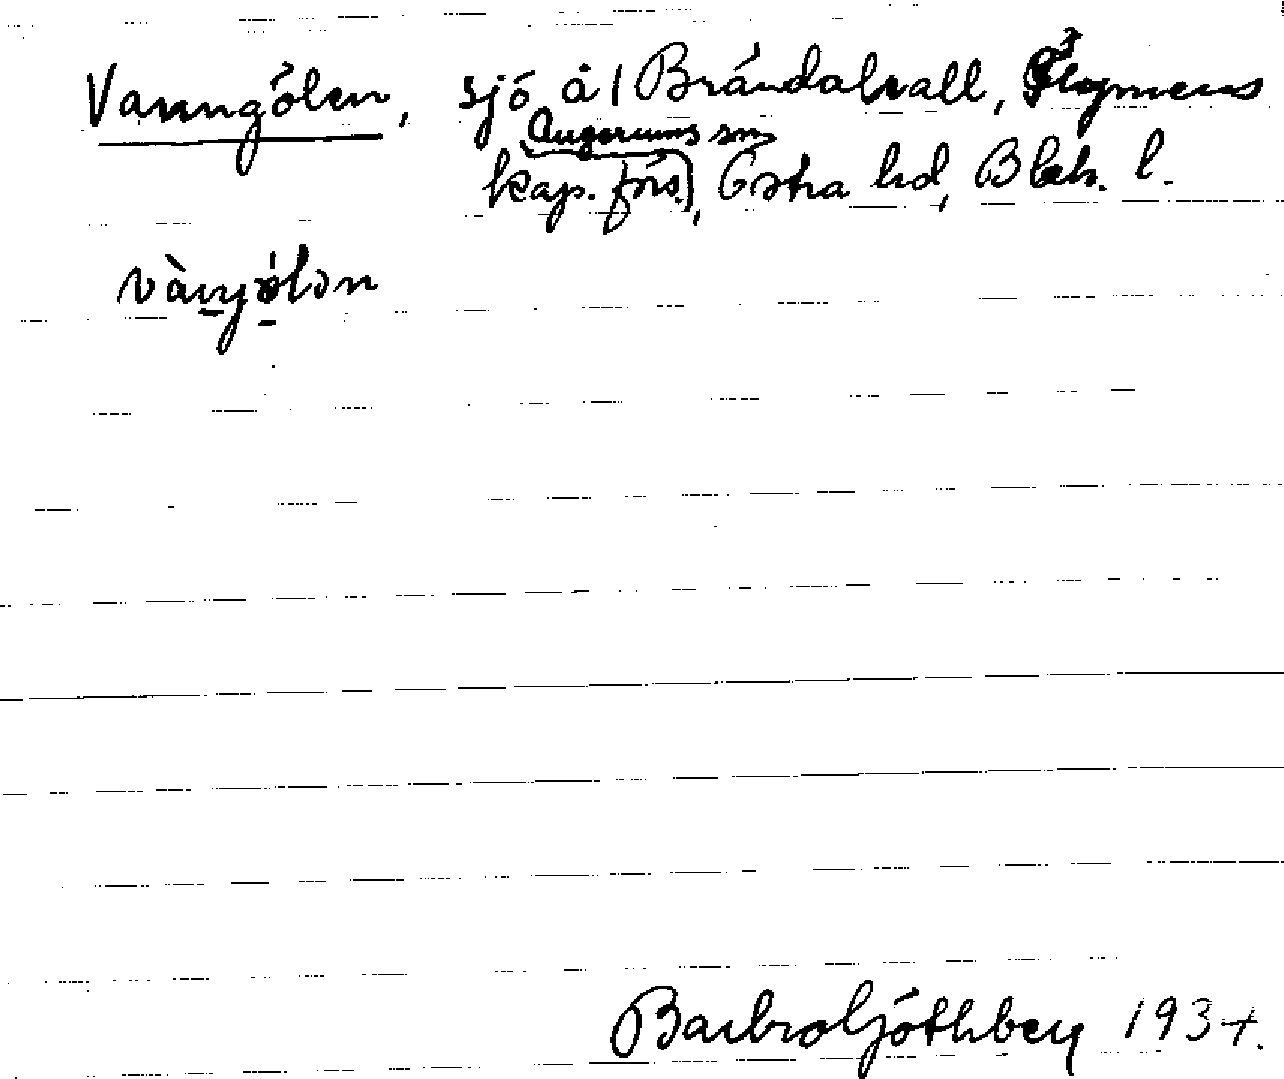 Vanngölen, sjö å 1 Brändalvall, Flymens
Augerums sn
kap. förs.), Östra hd, Blek. l.
vàŋyǿlən
Barbro Göthberg 1934.